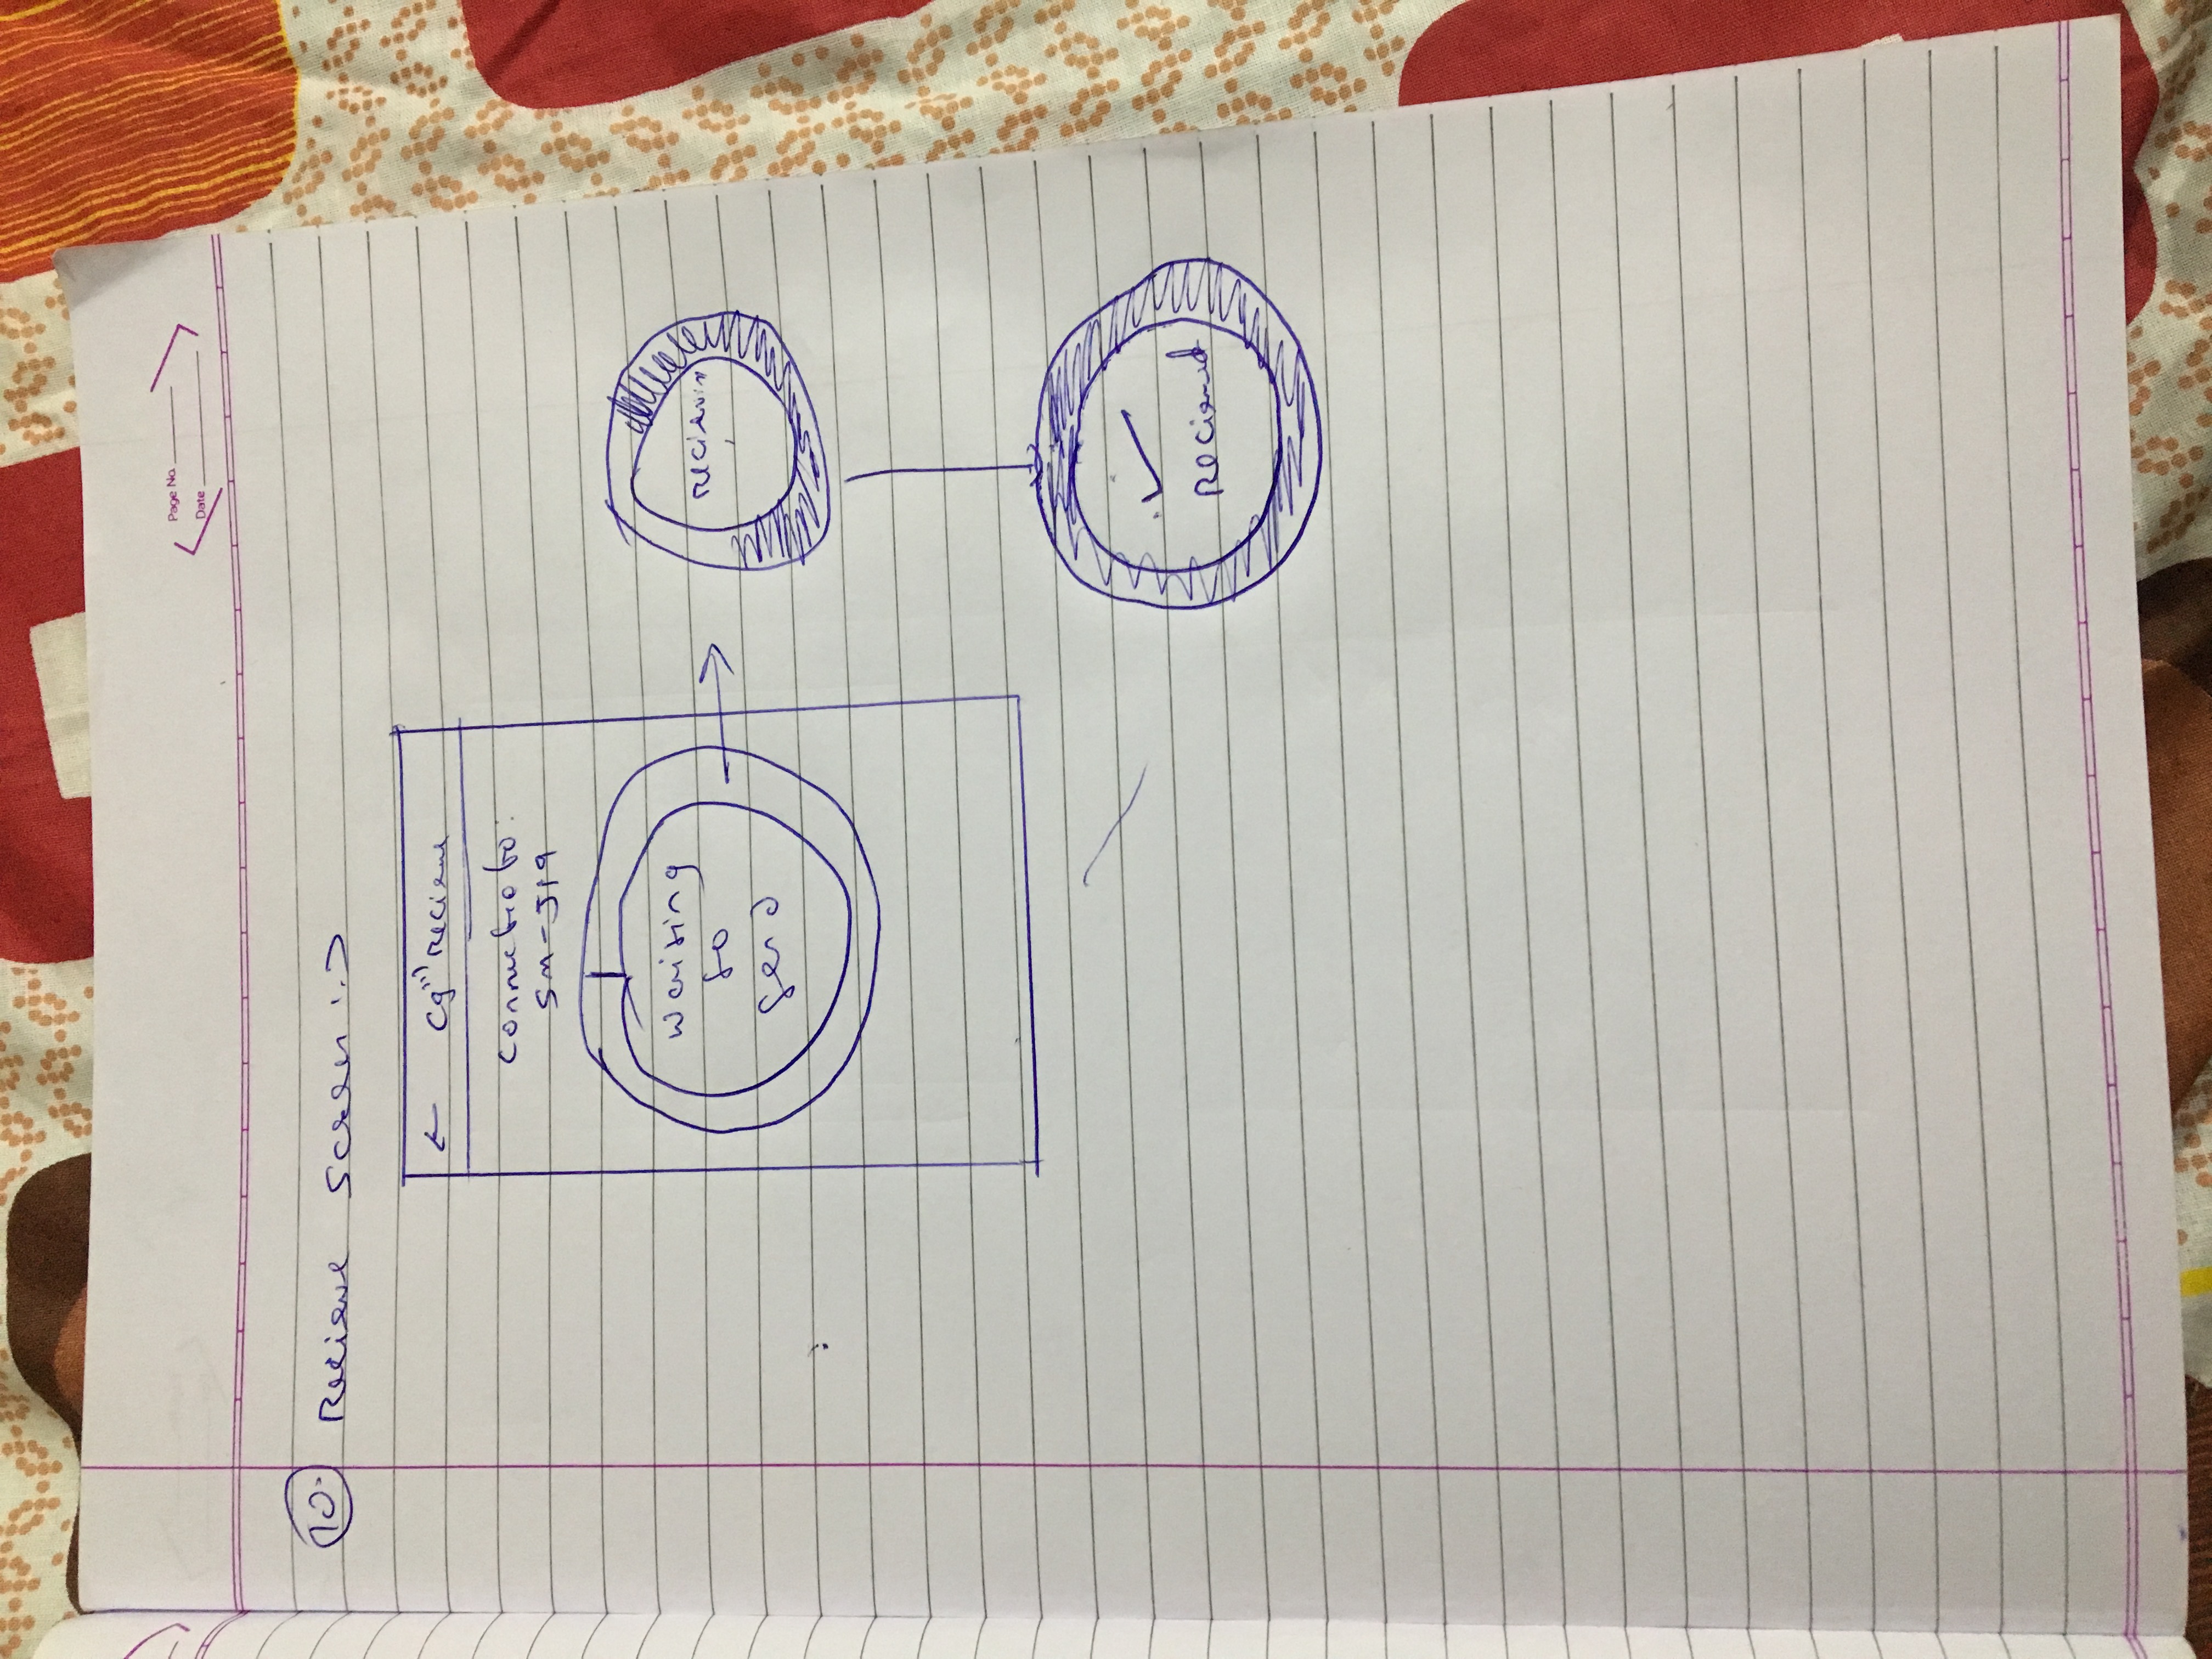 Page No.
Date
10.
Recieve Screen :->
← Recieve
Connected to:
SM-J19
Waiting
to
send
Recievin
✓
Recieved